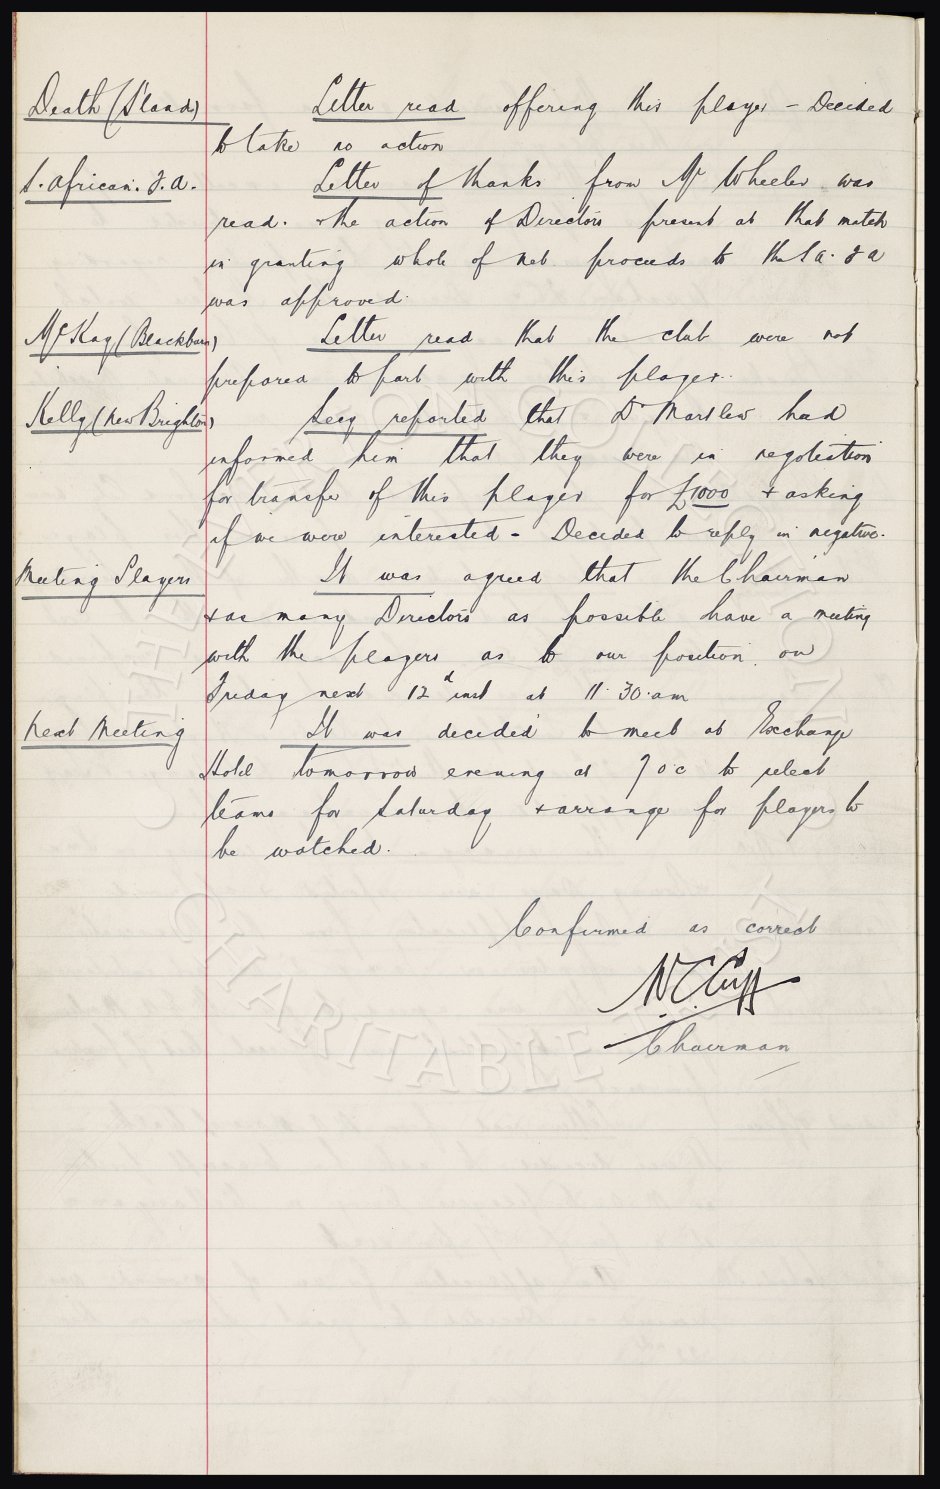 Death (S'land) Letter read offering this player - Decided
to take no action
S. African. F.A. Letter of thanks from Mr Wheeler was
read. + the action of Directors present at that match
in granting whole of net proceeds to the S A. F A
was approved.
McKay (Blackburn) Letter read that the club were not
prepared to part with this player.
Kelly (New Brighton) Secy reported that Dr Martlew had
informed him that they were in negotiation
for transfer of this player for £1000 + asking
if we were interested - Decided to reply in negative.
Meeting Players It was agreed that the Chairman
+ as many Directors as possible have a meeting
with the players as to our position on
Friday next 12th inst at 11.30.am
Next Meeting It was decided to meet at Exchange
Hotel tomorrow evening at 7 o'c to select
teams for Saturday + arrange for players to
be watched.
Confirmed as correct
W C Cuff
Chairman
EVERTON COLLECTION
CHARITABLE TRUST